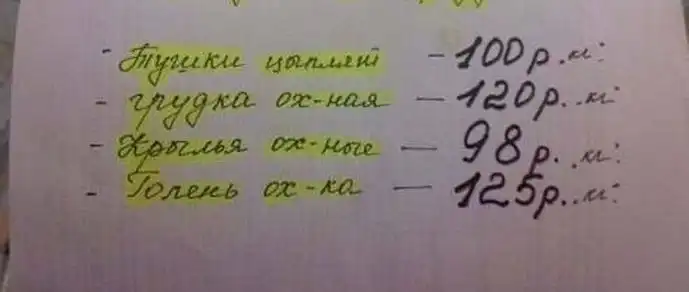 - Тушки цыплят - 100р.
- грудка ох-ная — 120р.
- Крылья ох-ные — 98р.
- Голень ох-ка — 125р.